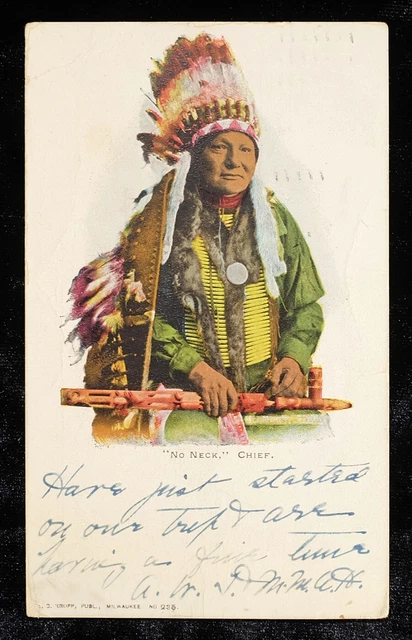 "No Neck," Chief.
Have just started
on our trip & are
having a fine time
A. W. J. M. M. A. H.
PUBL., MILWAUKEE No 235.